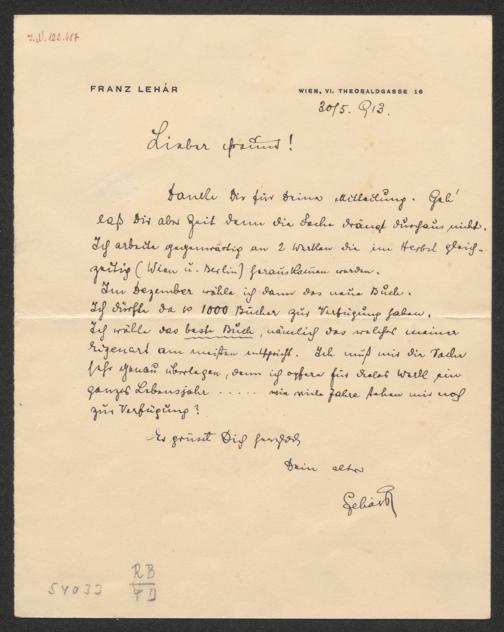 J.N. 122.417
FRANZ LEHÁR
WIEN, VI. THEOBALDGASSE 16
30/5. 913.
Lieber Freund!
Danke Dir für Deine Mitteilung. Geh'
laß Dir aber Zeit denn die Sache drängt durchaus nicht.
Ich arbeite gegenwärtig an 2 Werken die im Herbst gleich-
zeitig (Wien u. Berlin) herauskommen werden.
Im Dezember wähle ich dann das neue Buch.
Ich dürfte da 1000 Bücher zur Verfügung haben.
Ich wähle das beste Buch, nämlich das welches meiner
Eigenart am meisten entspricht. Ich muß mir die Sache
sehr genau überlegen, denn ich opfere für dieses Werk ein
ganzes Lebensjahr ..... wie viele Jahre stehen mir noch
zur Verfügung?
Es grüsst Dich herzlich
Dein alter
Lehár
54033
RB